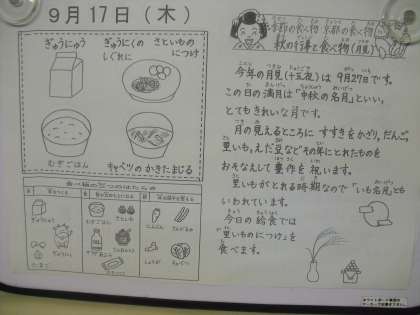 9月17日(木)
ぎゅうにゅう
ぎゅうにくの
しぐれに
さといもの
につけ
むぎごはん
キャベツのかきたまじる
食べ物の三つのはたらき
にんじん
しょうが
キャベツ
たまご
むぎごはん
さといも
京都の食べ物
秋の行事と食べ物(月見)
今年の月見(十五夜)は9月27日です。
この日の満月は“中秋の名月”といい、
とてもきれいな月です。
月の見えるところに すすきをかざり、だんご、
里いも、えだ豆などその年にとれたものを
おそなえして豊作を祝います。
里いもがとれる時期なので「いも名月」とも
いわれています。
今日の給食では
「里いものにつけ」を
食べます。